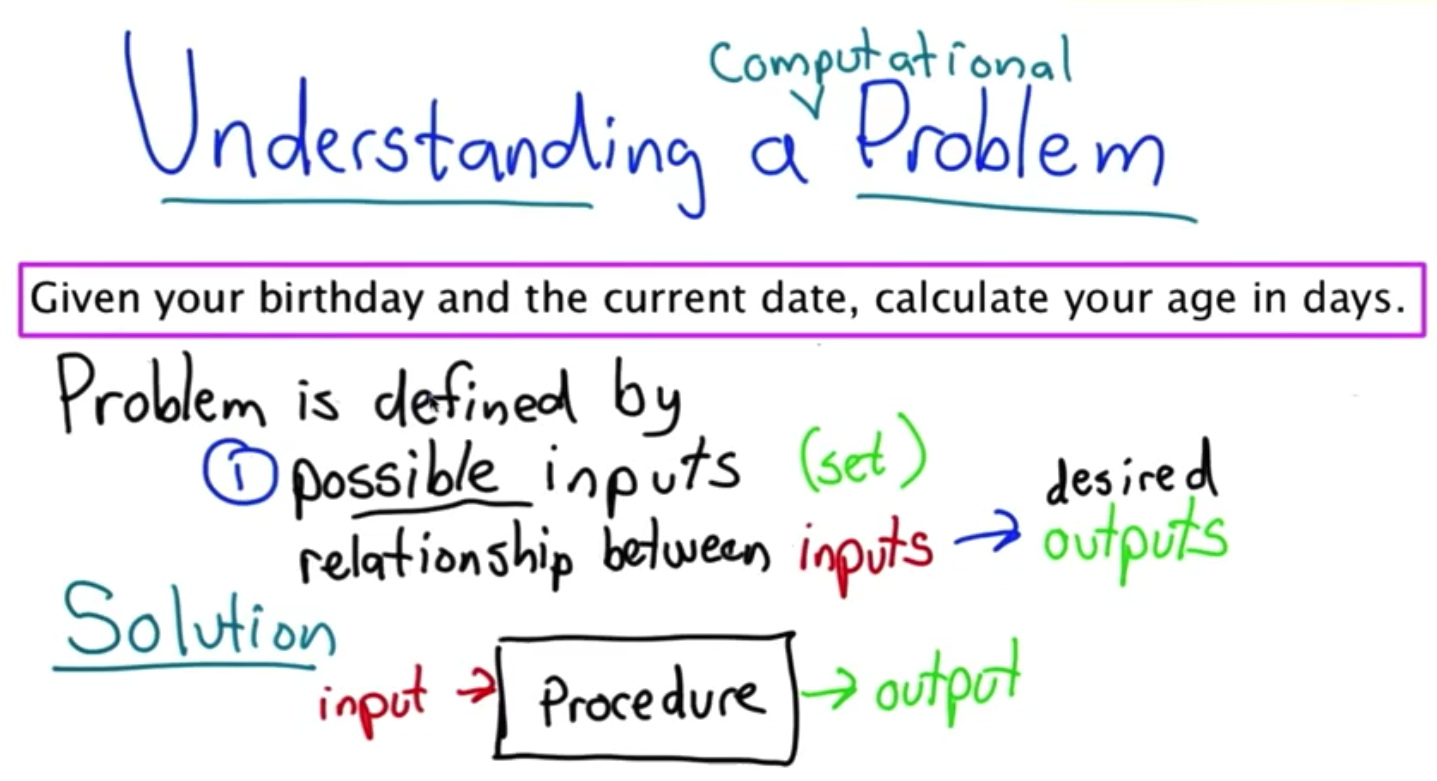 Computational
Understanding a Problem
Given your birthday and the current date, calculate your age in days.
Problem is defined by
① possible inputs (set) desired
relationship between inputs → outputs
Solution
input → Procedure → output